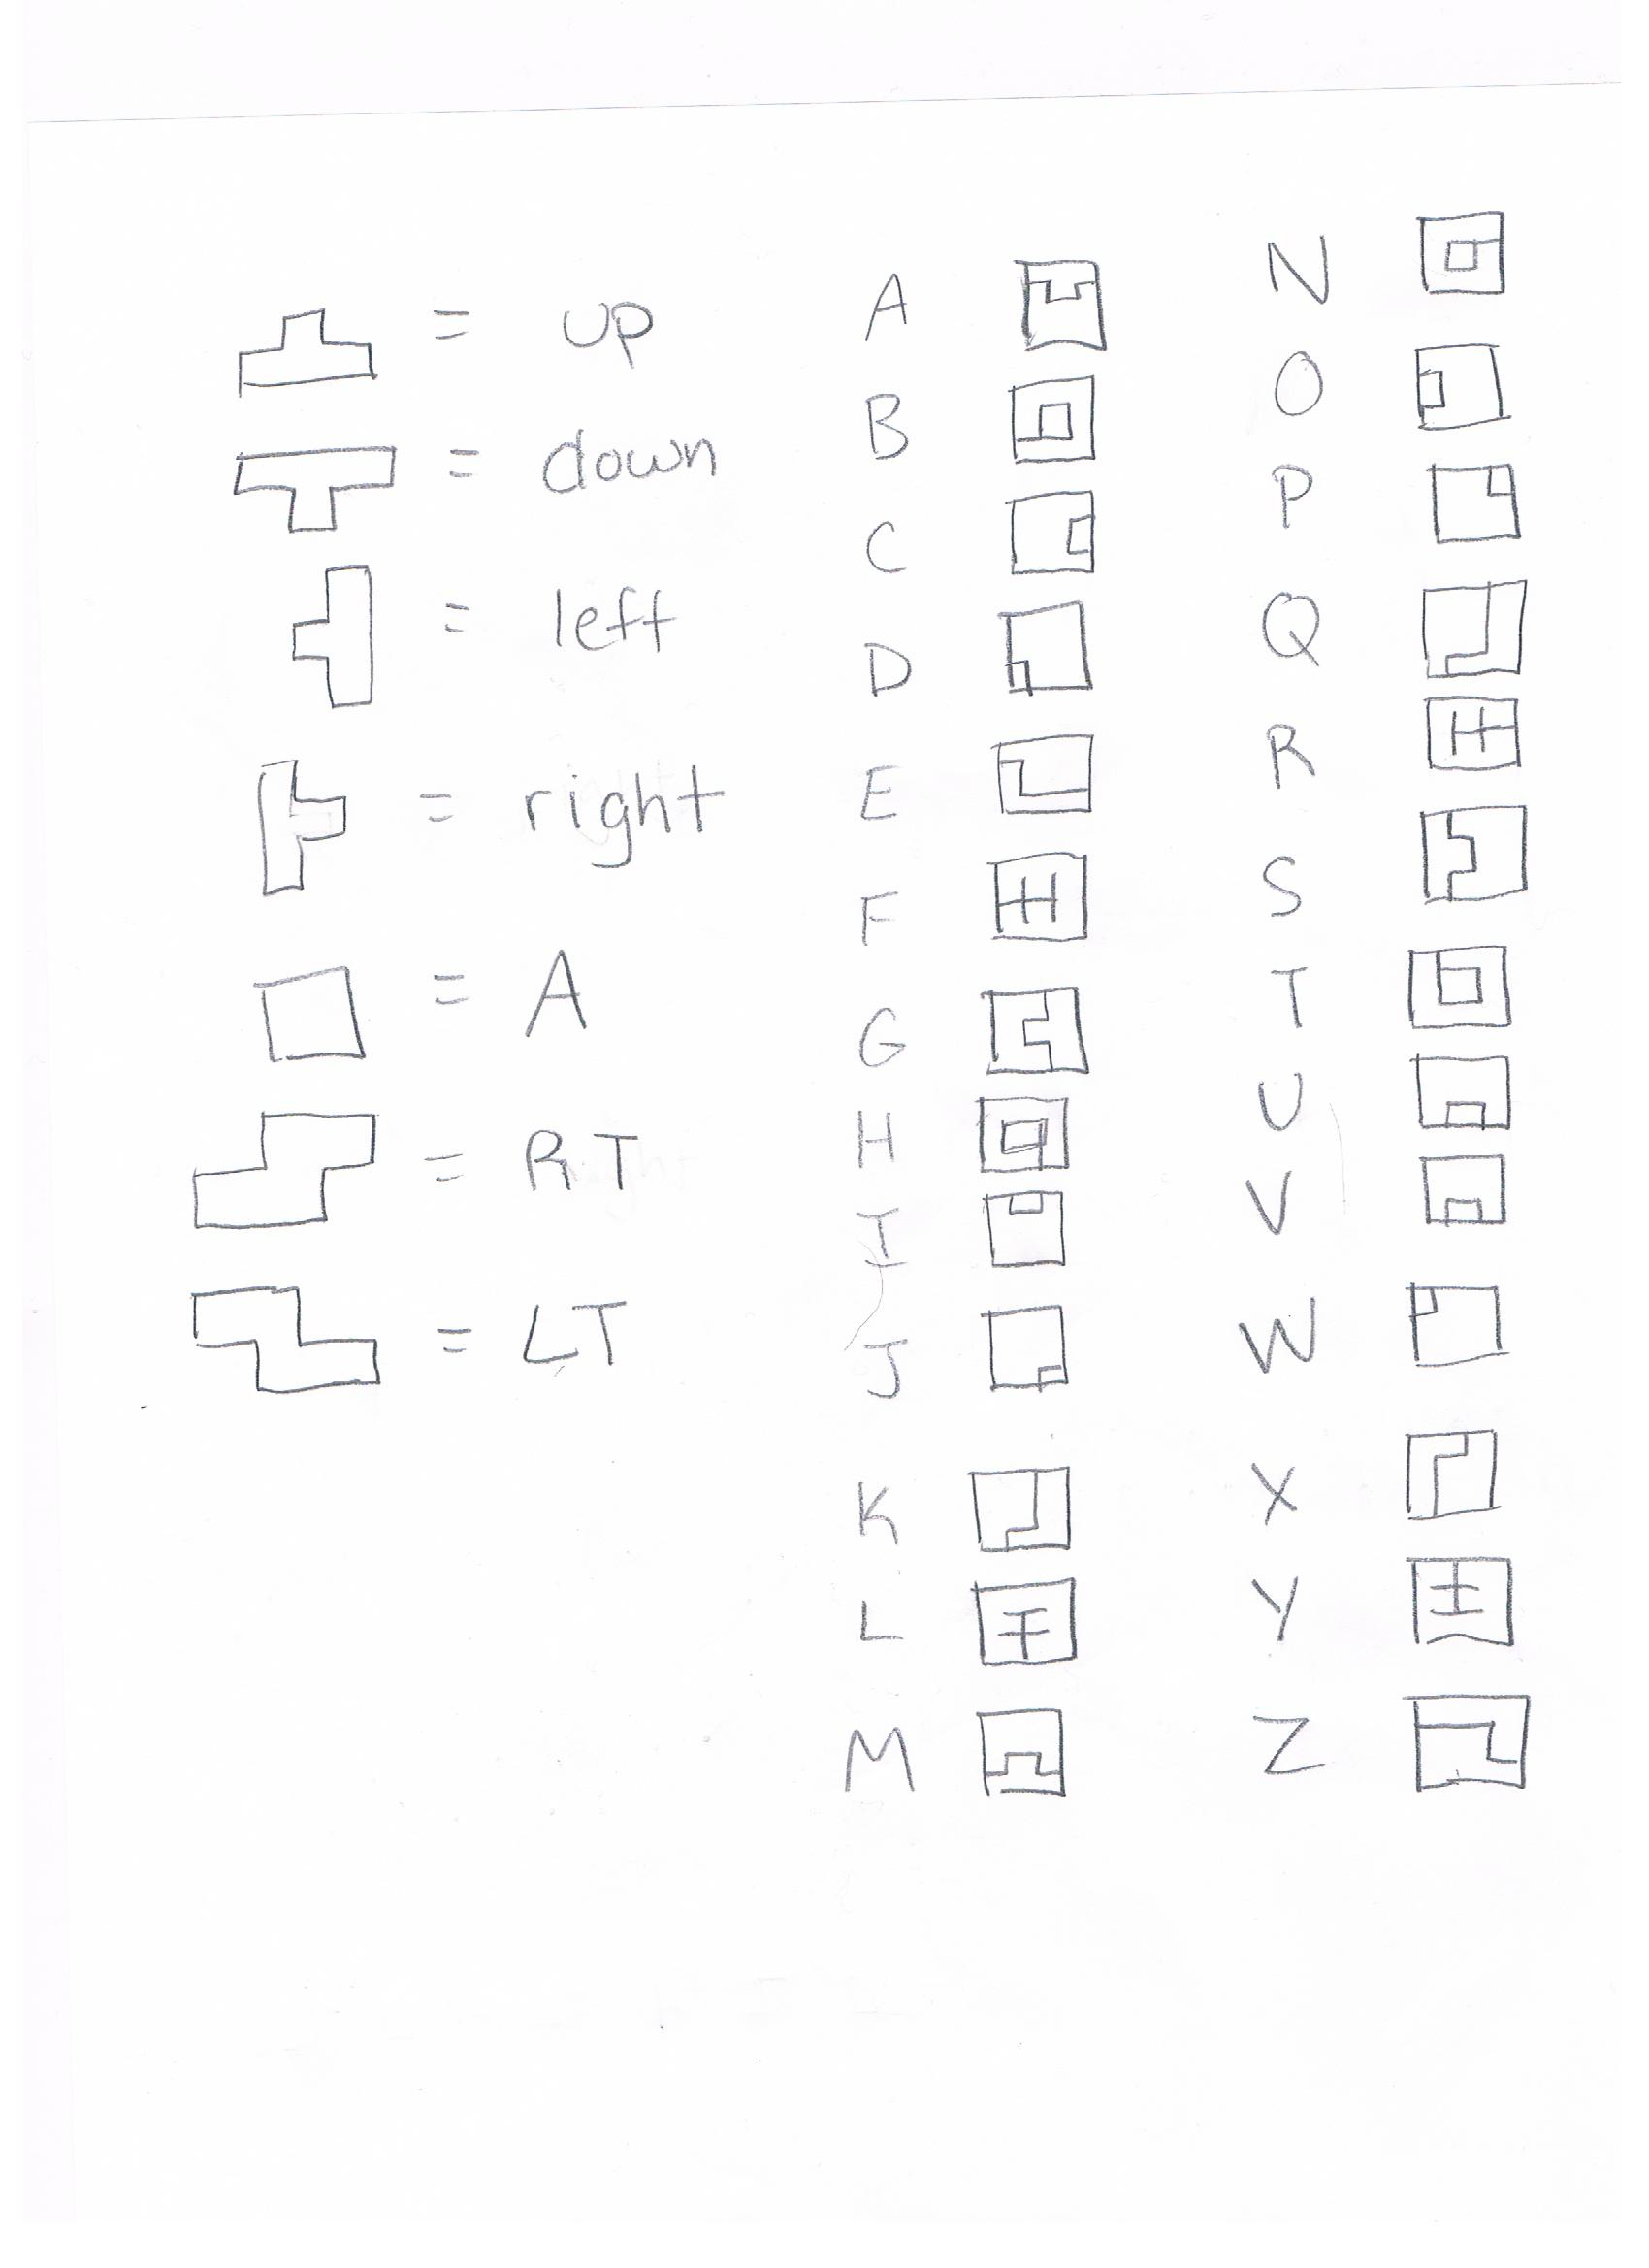 = up
= down
= left
= right
= A
= RT
= LT
A
B
C
D
E
F
G
H
I
J
K
L
M
N
O
P
Q
R
S
T
U
V
W
X
Y
Z